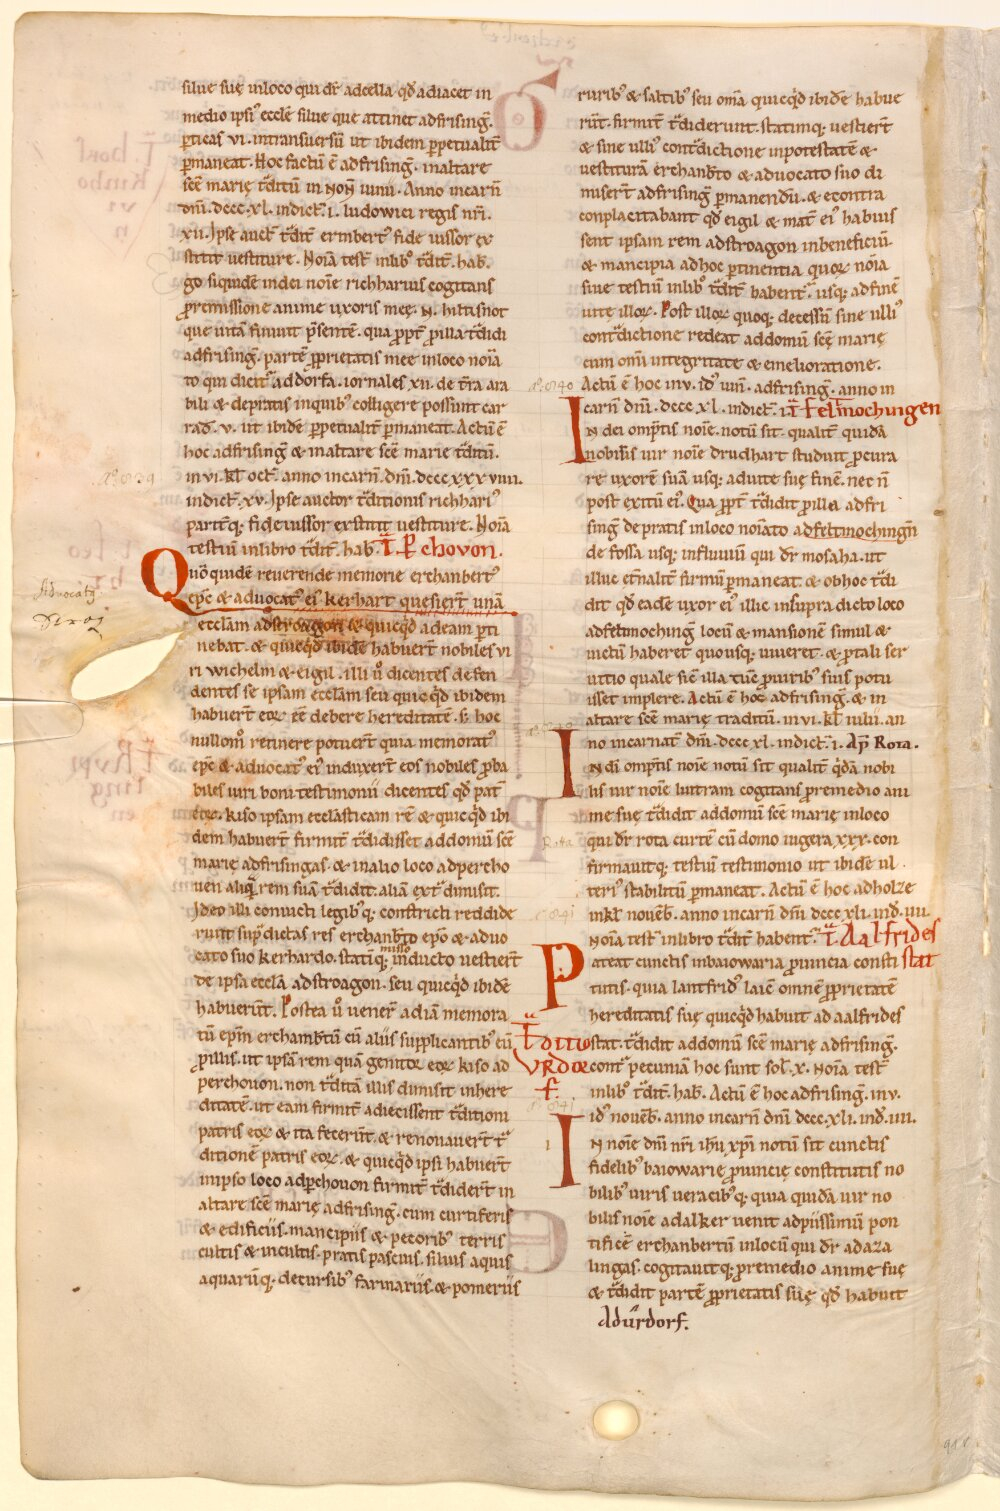 silue suę inloco qui dr̄ adcella qđ adiacet in
medio ipsi᷒ eccłe silue que attinet adfrising̅.
p̱ticas vi. intransuersū ut ibidem p̱petualit̄
p̱maneat. Hoc factū ē adfrising̅. inaltare
scē marię t̄ditū in Noṅ iunii. Anno incarn̄
dn̄i. dccc. xl. indict̄. i. ludowici regis nr̄i.
xii. Ipse auct̄ t̄dit̄ ermbert᷒ fide iussor ex
stitit uestiture. Noīa test̄ inlib᷒ t̄dit̄. hab̄.
go siquidē indei noīe richharius cogitans
ꝓremissione anime uxoris meę. N. hiltisnot
que uitā finiuit p̄sentē. qua ꝓpt̄ ꝓilla t̄didi
adfrising̅. partē ꝓprietatis mee inloco noīa
to qui dicit᷑ addorfa. iornales xii. de t̄ra ara
bili & depratis inquib᷒ colligere possunt car
rad̄. v. ut ibidē p̱petualit̄ p̱maneat. Actū ē
hoc adfrising̅ & inaltare scē marię t̄ditū.
in vi. kł oct̄. anno incarn̄. dn̄i. dccc. xxx viiii.
indict̄. xv. Ipse auctor t̄ditionis richhari᷒
parit̄q; fideiussor exstitit uestiture. Noīa
testiū inlibro t̄dit̄. hab̄. T̄. P̱chovon.
Quō quidē reuerende memorie erchanbert᷒
ep̄c & aduocat᷒ ei᷒ kerhart quesier̄t unā
ecclam adstroagon & quicqđ adeam p̱ti
nebat. & quicqđ ibidē habuer̄t nobiles vi
ri wichelm & eigil. illi u̇̄ dicentes defen
dentes se ipsam ecclam seu quicqđ ibidem
habuer̄t eoꝝ eē debere hereditatē. s; hoc
nullom̊ retinere potuer̄t quia memorat᷒
ep̄c & aduocat᷒ ei᷒ induxer̄t eos nobiles ꝓba
biles uiri boni testimonii dicentes qđ pat̄
eoꝝ. kiso ipsam ecclasticam rē & quicqđ ibi
dem habuer̄t firmit̄ t̄didisset addomū scē
marię adfrisingas. & inalio loco adpercho
uen aliq̄ rem suā t̄didit. aliā ext̄ dimisit.
Ideo illi conuicti legib᷒q; constricti reddide
runt sup̄dictas res erchanb̄to ep̄o & aduo
cato suo kerhardo. statiq; misso inducto uestier̄t
de ipsa ecclā adstroagon. seu quicqđ ibidē
habuer̄t. Postea u̇̄ uener̄ adiā memora
tū ep̄m erchamb̄tū cū aliis supplicantib᷒ cū
ꝓillis. ut ipsā rem quā genitor eoꝝ kiso ad
perchouon. non t̄ditā illis dimisit inhere
ditatē. ut eam firmit̄ adiecissent t̄ditioni
patris eoꝝ & ita fecer̄t. & renouauer̄t t̄
ditionē patris eoꝝ. & quicqđ ipsi habuer̄t
inipso loco adp̱chouon firmit̄ t̄dider̄t in
altare scē marię adfrising̅. cum curtiferis
& edificiis. mancipiis & pecorib᷒ terris
cultis & incultis. pratis pascuis. siluis aquis
aquarūq; decursib᷒ farinariis & pomeriis
rurib᷒ & saltib᷒ seu om̄a quicqđ ibidē habue
rūt. firmit̄ t̄diderunt. statimq; uestier̄t
& sine ulli᷒ cont̄dictione inpotestatē &
uestiturā erchanb̄to & aduocato suo di
miser̄t adfrising̅ p̱manendū. & econtra
conplacitabant qđ eigil & mat̄ ei᷒ habuis
sent ipsam rem adstroagon inbeneficiū.
& mancipia adhoc p̱tinentia quoꝝ noīa
siue testiū inlib᷒ t̄dit̄ habent᷑. usq; adfinē
uitę illoꝝ. Post illoꝝ quoq; decessū sine ulli᷒
cont̄dictione redeat addomū scę marię
cum om̄i integritate & emelioratione.
Actū ē hoc inv. id᷒ iun̄. adfrising̅. anno in
carn̄ dn̄i. dccc. xl. indict̄. i. T̄ feltmochingen
In dei omp̄tis noīe. notū sit. qualit̄ quidā
nobilis uir noīe drudhart studuit ꝓcura
re uxorē suā usq; aduite suę finē. nec ñ
post exitū ei᷒. Qua ꝓpt̄ t̄didit ꝓilla adfri
sing̅ depratis inloco noīato adfeltmochingn̄
de fossa usq; influuiū qui dr̄ mosaha. ut
illuc et̄nalit̄ firmū p̱maneat. & obhoc t̄di
dit qđ eadē uxor ei᷒ illic insupra dicto loco
adfeltmoching̅ locū & mansionē simul &
uictū haberet quousq; uiueret. & ꝓtali ser
uitio quale siē illa tūc ꝓuirib᷒ suis potu
isset implere. Actū ē hoc adfrising̅. & in
altare scē marię traditū. in vi. kł iulii. an
no incarnat̄ dn̄i. dccc. xl. indict̄. i. Ap̄ Rota.
In dī omp̄tis noīe notū sit qualit̄ qđā nobi
lis uir noīe liutram cogitans ꝓremedio ani
me suę t̄didit addomū scē marię inloco
qui dr̄ rota curtē cū domo iugera xxx. con
firmauitq; testiū testimonio ut ibidē ul
teri᷒ stabilitū p̱maneat. Actū ē hoc adholze
inkł nouēb̄. anno incarn̄ dn̄i dccc. xli. ind̄. iiii.
Noīa test̄ inlibro t̄dit̄ habent᷑. T̄ Aalfrides
stat
Pateat cunctis inbaiowaria ꝓuincia consti
tutis. quia lantfrid᷒ laic᷒ omnē ꝓprietatē
hereditatis suę quicqđ habuit ad aalfrides
stat. t̄didit addomū scē marię adfrising̅.
cont̄ pecuniā hoc sunt sol. x. Noīa test̄
inlib᷒ t̄dit̄. hab̄. Actū ē hoc adfrising̅. inv.
id᷒ nouēb̄. anno incarn̄ dn̄i dccc. xli. ind̄. iiii.
T̄ditio
VRdor
f.
In noīe dn̄i nr̄i ihū xp̄i notū sit cunctis
fidelib᷒ baiowarię ꝓuincię constitutis no
bilib᷒ uiris ueracib᷒q; quia quidā uir no
bilis noīe adalker uenit adpiissimū pon
tificē erchanbertū inlocū qui dr̄ adaza
lingas. cogitauitq; ꝓremedio animę suę
& t̄didit partē ꝓprietatis suę qđ habuit
Adurdorf.